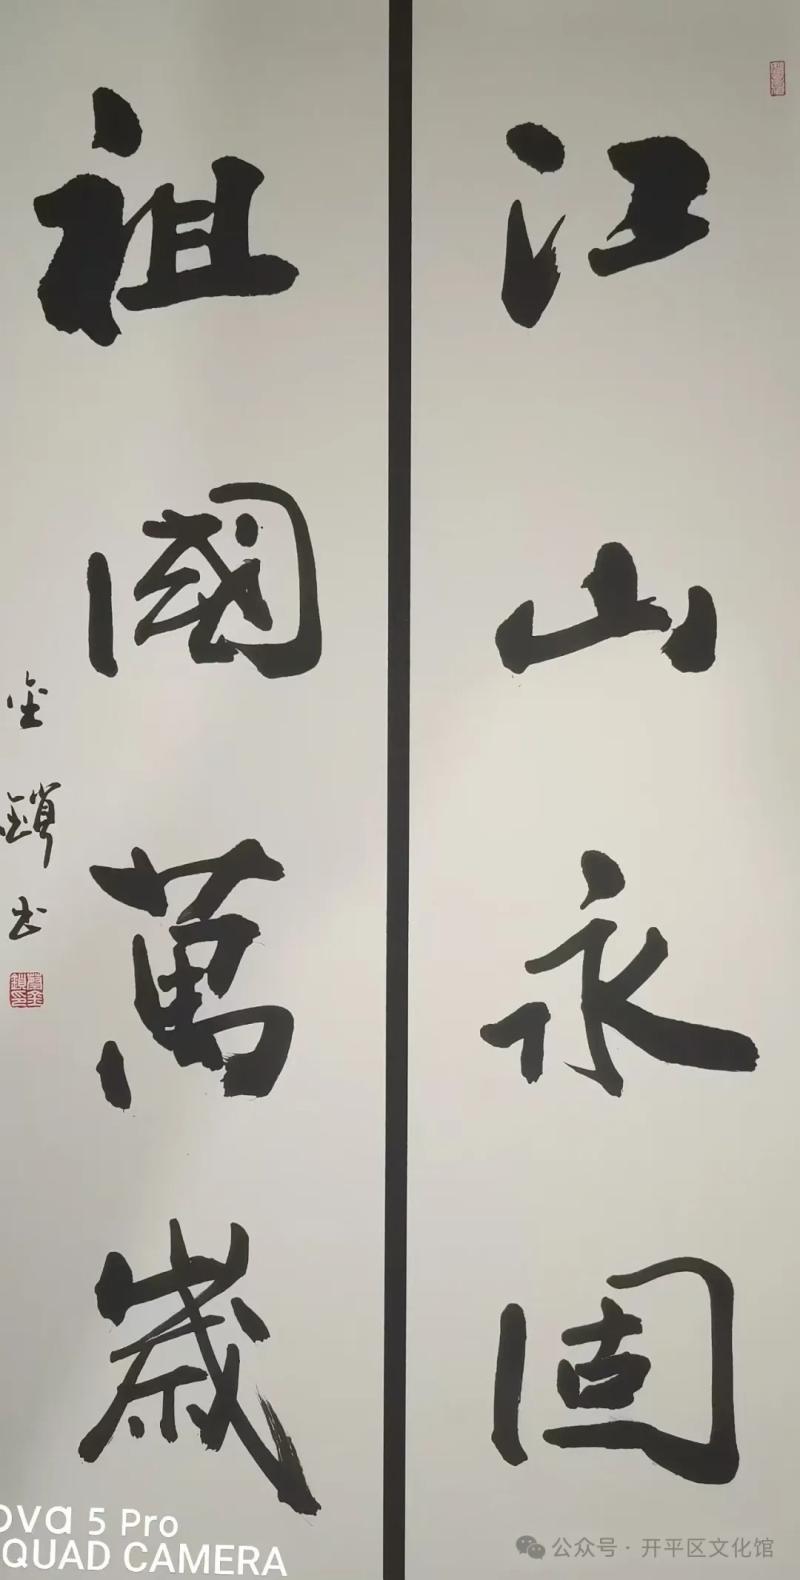 江山永固
祖國萬歲
金鎖书
ova 5 Pro
QUAD CAMERA
公众号 · 开平区文化馆